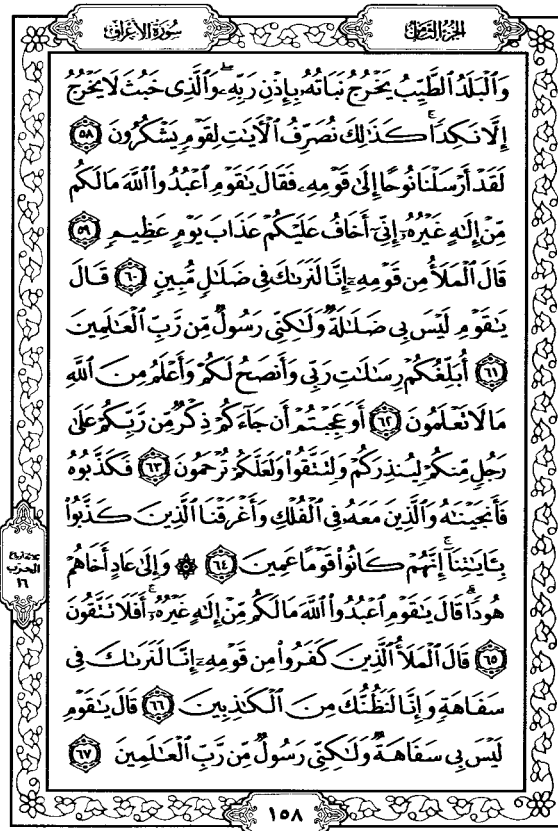 الجزء الثامن
سورة الأعراف
وَٱلْبَلَدُ ٱلطَّيِّبُ يَخْرُجُ نَبَاتُهُۥ بِإِذْنِ رَبِّهِۦۖ وَٱلَّذِى خَبُثَ لَا يَخْرُجُ
إِلَّا نَكِدًاۚ كَذَٰلِكَ نُصَرِّفُ ٱلْءَايَٰتِ لِقَوْمٍ يَشْكُرُونَ ٥٨
لَقَدْ أَرْسَلْنَا نُوحًا إِلَىٰ قَوْمِهِۦ فَقَالَ يَٰقَوْمِ ٱعْبُدُوا۟ ٱللَّهَ مَا لَكُم
مِّنْ إِلَٰهٍ غَيْرُهُۥٓ إِنِّىٓ أَخَافُ عَلَيْكُمْ عَذَابَ يَوْمٍ عَظِيمٍ ٥٩
قَالَ ٱلْمَلَأُ مِن قَوْمِهِۦٓ إِنَّا لَنَرَىٰكَ فِى ضَلَٰلٍ مُّبِينٍ ٦٠ قَالَ
يَٰقَوْمِ لَيْسَ بِى ضَلَٰلَةٌ وَلَٰكِنِّى رَسُولٌ مِّن رَّبِّ ٱلْعَٰلَمِينَ
٦١ أُبَلِّغُكُمْ رِسَٰلَٰتِ رَبِّى وَأَنصَحُ لَكُمْ وَأَعْلَمُ مِنَ ٱللَّهِ
مَا لَا تَعْلَمُونَ ٦٢ أَوَعَجِبْتُمْ أَن جَآءَكُمْ ذِكْرٌ مِّن رَّبِّكُمْ عَلَىٰ
رَجُلٍ مِّنكُمْ لِيُنذِرَكُمْ وَلِتَتَّقُوا۟ وَلَعَلَّكُمْ تُرْحَمُونَ ٦٣ فَكَذَّبُوهُ
فَأَنجَيْنَٰهُ وَٱلَّذِينَ مَعَهُۥ فِى ٱلْفُلْكِ وَأَغْرَقْنَا ٱلَّذِينَ كَذَّبُوا۟
بِـَٔايَٰتِنَآۚ إِنَّهُمْ كَانُوا۟ قَوْمًا عَمِينَ ٦٤ ۞ وَإِلَىٰ عَادٍ أَخَاهُمْ
هُودًاۗ قَالَ يَٰقَوْمِ ٱعْبُدُوا۟ ٱللَّهَ مَا لَكُم مِّنْ إِلَٰهٍ غَيْرُهُۥٓۚ أَفَلَا تَتَّقُونَ
٦٥ قَالَ ٱلْمَلَأُ ٱلَّذِينَ كَفَرُوا۟ مِن قَوْمِهِۦٓ إِنَّا لَنَرَىٰكَ فِى
سَفَاهَةٍ وَإِنَّا لَنَظُنُّكَ مِنَ ٱلْكَٰذِبِينَ ٦٦ قَالَ يَٰقَوْمِ
لَيْسَ بِى سَفَاهَةٌ وَلَٰكِنِّى رَسُولٌ مِّن رَّبِّ ٱلْعَٰلَمِينَ ٦٧
الحزب
١٦
١٥٨